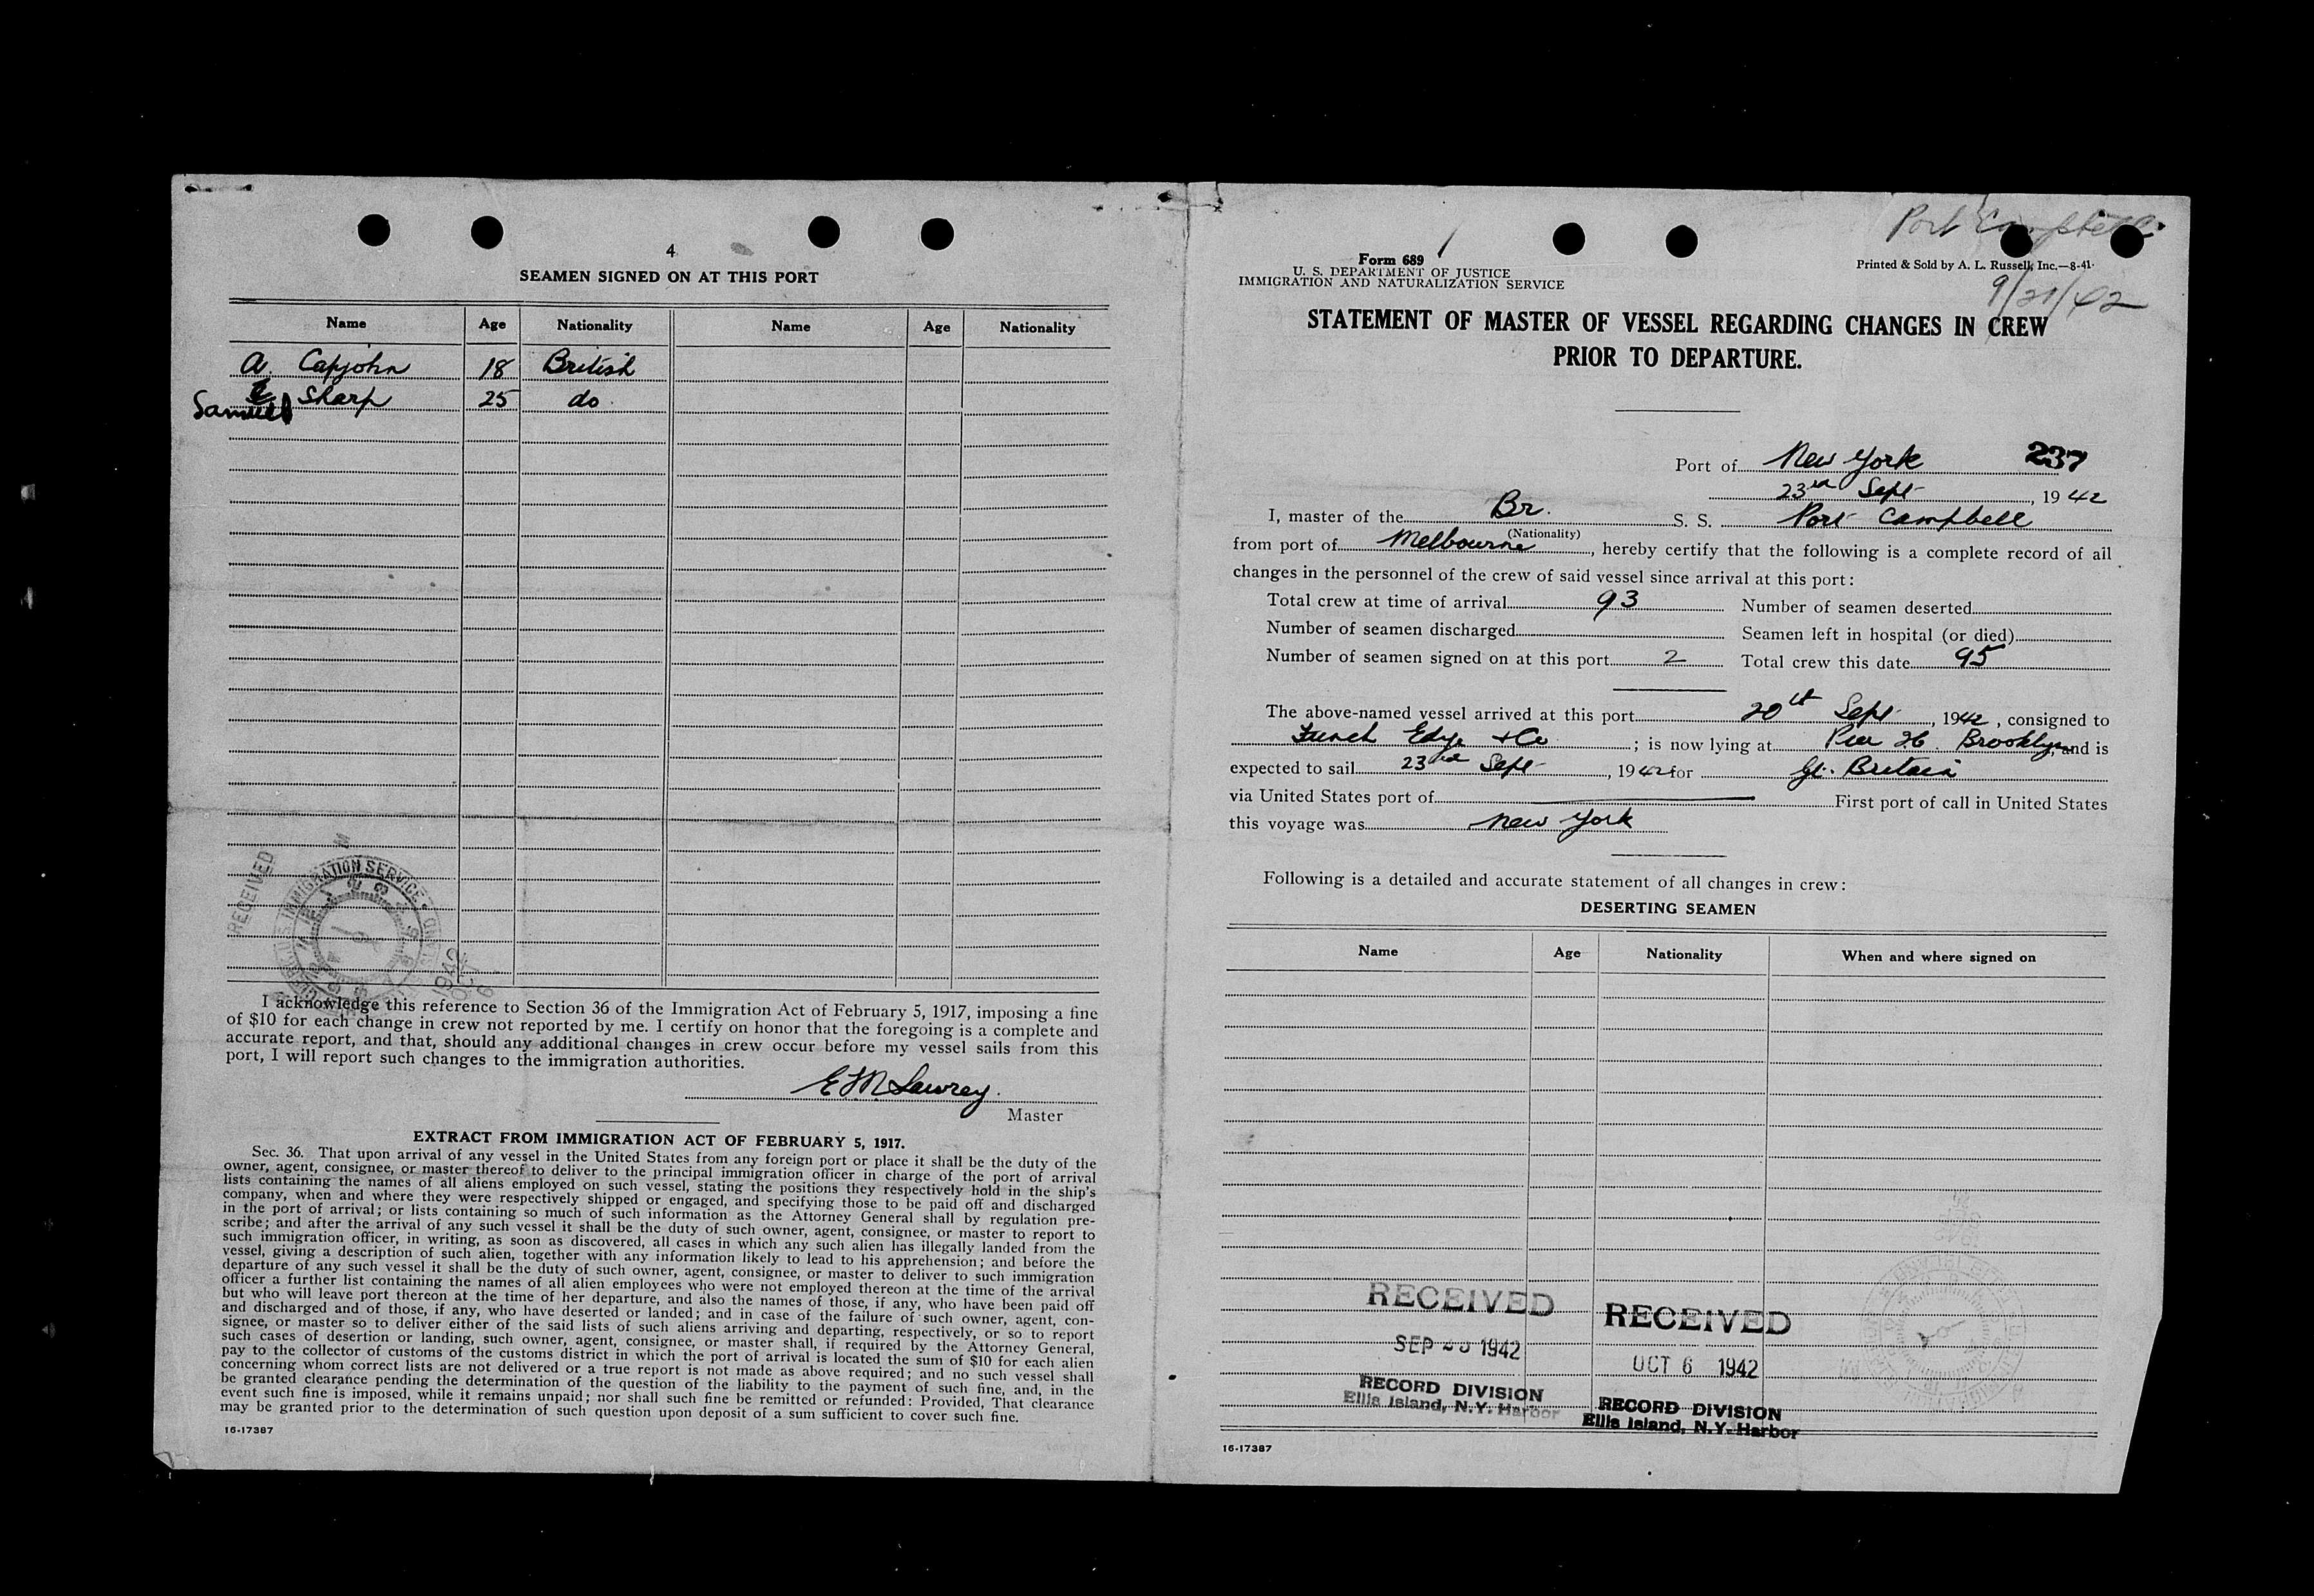 4
SEAMEN SIGNED ON AT THIS PORT
Name Age Nationality Name Age Nationality
A. Capjohn 18 British
Samuel Sharp 25 do
RECEIVED
IMMIGRATION SERVICE
1942
I acknowledge this reference to Section 36 of the Immigration Act of February 5, 1917, imposing a fine
of $10 for each change in crew not reported by me. I certify on honor that the foregoing is a complete and
accurate report, and that, should any additional changes in crew occur before my vessel sails from this
port, I will report such changes to the immigration authorities.
Master
EXTRACT FROM IMMIGRATION ACT OF FEBRUARY 5, 1917.
Sec. 36. That upon arrival of any vessel in the United States from any foreign port or place it shall be the duty of the
owner, agent, consignee, or master thereof to deliver to the principal immigration officer in charge of the port of arrival
lists containing the names of all aliens employed on such vessel, stating the positions they respectively hold in the ship's
company, when and where they were respectively shipped or engaged, and specifying those to be paid off and discharged
in the port of arrival; or lists containing so much of such information as the Attorney General shall by regulation pre-
scribe; and after the arrival of any such vessel it shall be the duty of such owner, agent, consignee, or master to report to
such immigration officer, in writing, as soon as discovered, all cases in which any such alien has illegally landed from the
vessel, giving a description of such alien, together with any information likely to lead to his apprehension; and before the
departure of any such vessel it shall be the duty of such owner, agent, consignee, or master to deliver to such immigration
officer a further list containing the names of all alien employees who were not employed thereon at the time of the arrival
but who will leave port thereon at the time of her departure, and also the names of those, if any, who have been paid off
and discharged and of those, if any, who have deserted or landed; and in case of the failure of such owner, agent, con-
signee, or master so to deliver either of the said lists of such aliens arriving and departing, respectively, or so to report
such cases of desertion or landing, such owner, agent, consignee, or master shall, if required by the Attorney General,
pay to the collector of customs of the customs district in which the port of arrival is located the sum of $10 for each alien
concerning whom correct lists are not delivered or a true report is not made as above required; and no such vessel shall
be granted clearance pending the determination of the question of the liability to the payment of such fine, and, in the
event such fine is imposed, while it remains unpaid; nor shall such fine be remitted or refunded: Provided, That clearance
may be granted prior to the determination of such question upon deposit of a sum sufficient to cover such fine.
16-17387
Port Campbell
Form 689
U. S. DEPARTMENT OF JUSTICE
IMMIGRATION AND NATURALIZATION SERVICE
Printed & Sold by A. L. Russell, Inc.—8-41
9/21/42
STATEMENT OF MASTER OF VESSEL REGARDING CHANGES IN CREW
PRIOR TO DEPARTURE.
Port of New York 237
23rd Sept, 1942
I, master of the Br. S. S. Port Campbell
(Nationality)
from port of Melbourne, hereby certify that the following is a complete record of all
changes in the personnel of the crew of said vessel since arrival at this port:
Total crew at time of arrival 93 Number of seamen deserted
Number of seamen discharged Seamen left in hospital (or died)
Number of seamen signed on at this port 2 Total crew this date 95
The above-named vessel arrived at this port 20th Sept, 1942, consigned to
Funch Edye & Co; is now lying at Pier 26 Brooklyn, and is
expected to sail 23rd Sept, 1942 for Gt. Britain
via United States port of First port of call in United States
this voyage was New York
Following is a detailed and accurate statement of all changes in crew:
DESERTING SEAMEN
Name Age Nationality When and where signed on
RECEIVED RECEIVED
SEP 1942 OCT 6 1942
RECORD DIVISION RECORD DIVISION
Ellis Island, N.Y. Harbor Ellis Island, N.Y. Harbor
16-17387